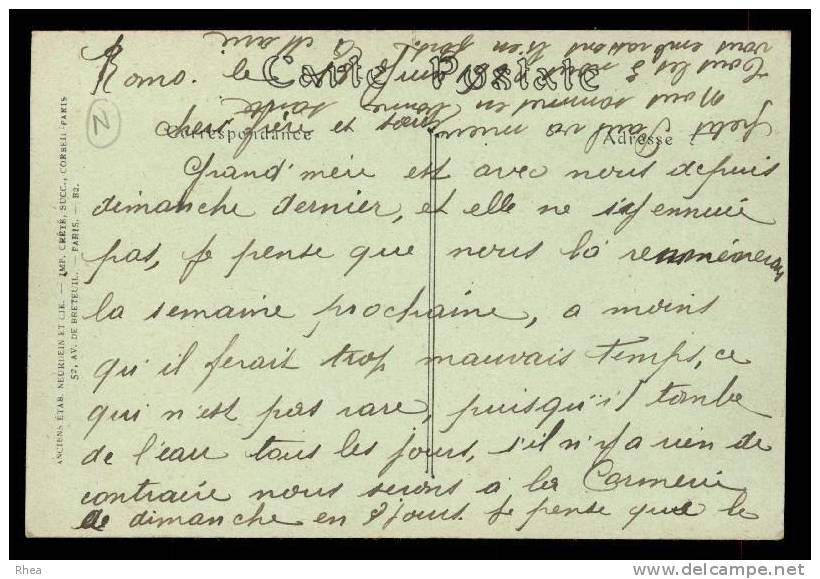 Carte Postale
Correspondance
Adresse
Romo. le
Cher père et
Grand'mère est avec nous depuis
dimanche dernier, et elle ne s'y ennuie
pas, je pense que nous la remmènerons
la semaine prochaine, a moins
qu'il ferait trop mauvais temps, ce
qui n'est pas rare, puisqu'il tombe
de l'eau tous les jours, s'il n'y a rien de
contraire nous serons à la
de dimanche en 8 jours. Je pense que le
petit va mieux
nous sommes en bonne santé
Tous les 3 nous
vous embrassons bien fort.
ANCIENS ÉTAB. NEURDEIN ET CIE. — IMP. CRÉTÉ, SUCC., CORBEIL-PARIS
52, AV. DE BRETEUIL. — PARIS. — B2.
N
Rhea
delcampe.net